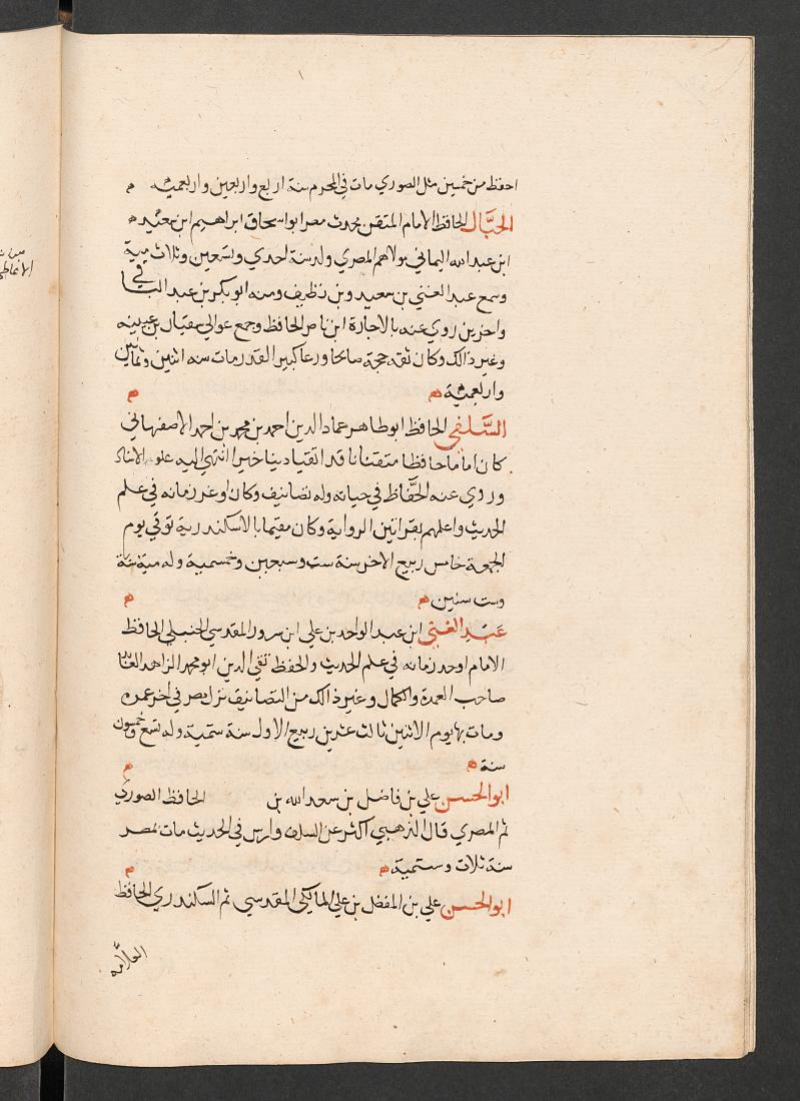 احفظ من خمسين مثل الصوري مات في المحرم سنة اربع واربعين واربعمية م
الحبَّال الحافظ الامام المتقن محدث مصر ابو اسحاق ابراهيم ابن سعيد
ابن عبد الله اليماني مولاهم المصري ولد سنة احدي وتسعين وثلاث مية
وسمع عبد الغني بن سعيد وبن نظيف ومنه ابو بكر بن عبد الباقي
واخر من روي عنه بالاجازة ابن ناصر الحافظ وجمع عوالي سفيان بن عيينه
وغير ذالك وكان ثقه حجة صالحا ورعا كبير القدر مات سنه اثنين وثمانين
واربعمية م م
السَّلفي الحافظ ابو طاهر عماد الدين احمد بن محمد بن احمد الاصفهاني
كان اماما حافظا متقنا ناقدا تقيا دينا خيرا انتهي اليه علو الاسناد
وروي عنه الحفَّاظ في حياته وله تصانيف وكان اوحد زمانه في علم
الحديث واعلمهم بقوانين الرواية وكان مقيما بالاسكندرية توفي يوم
الجمعة خامس ربيع الاخر سنة ست وسبعين وخمسمية وله مية سنة
وست سنين م م
عَبْد الغني ابن عبد الواحد بن علي ابن سرور المقدسي الحنبلي الحافظ
الامام اوحد زمانه في علم الحديث والحفظ تقي الدين ابو محمد الزاهد العابد
صاحب العمدة والكمال وغير ذالك من التصانيف نزل مصر في اخر عمره
ومات بها يوم الاثنين ثالث عشرين ربيع الاول سنة ستمية وله تسع خمسون
سنة م م
ابو الحسن علي بن فاضل بن سعد الله بن الحافظ الصوري
ثم المصري قال الذهبي اكثر عن السلف وراس في الحديث مات بمصر
سنة ثلاث وستمية م م
ابو الحسن علي بن المفضل بن علي المالكي المقدسي ثم السكندري الحافظ
العلاَّمه